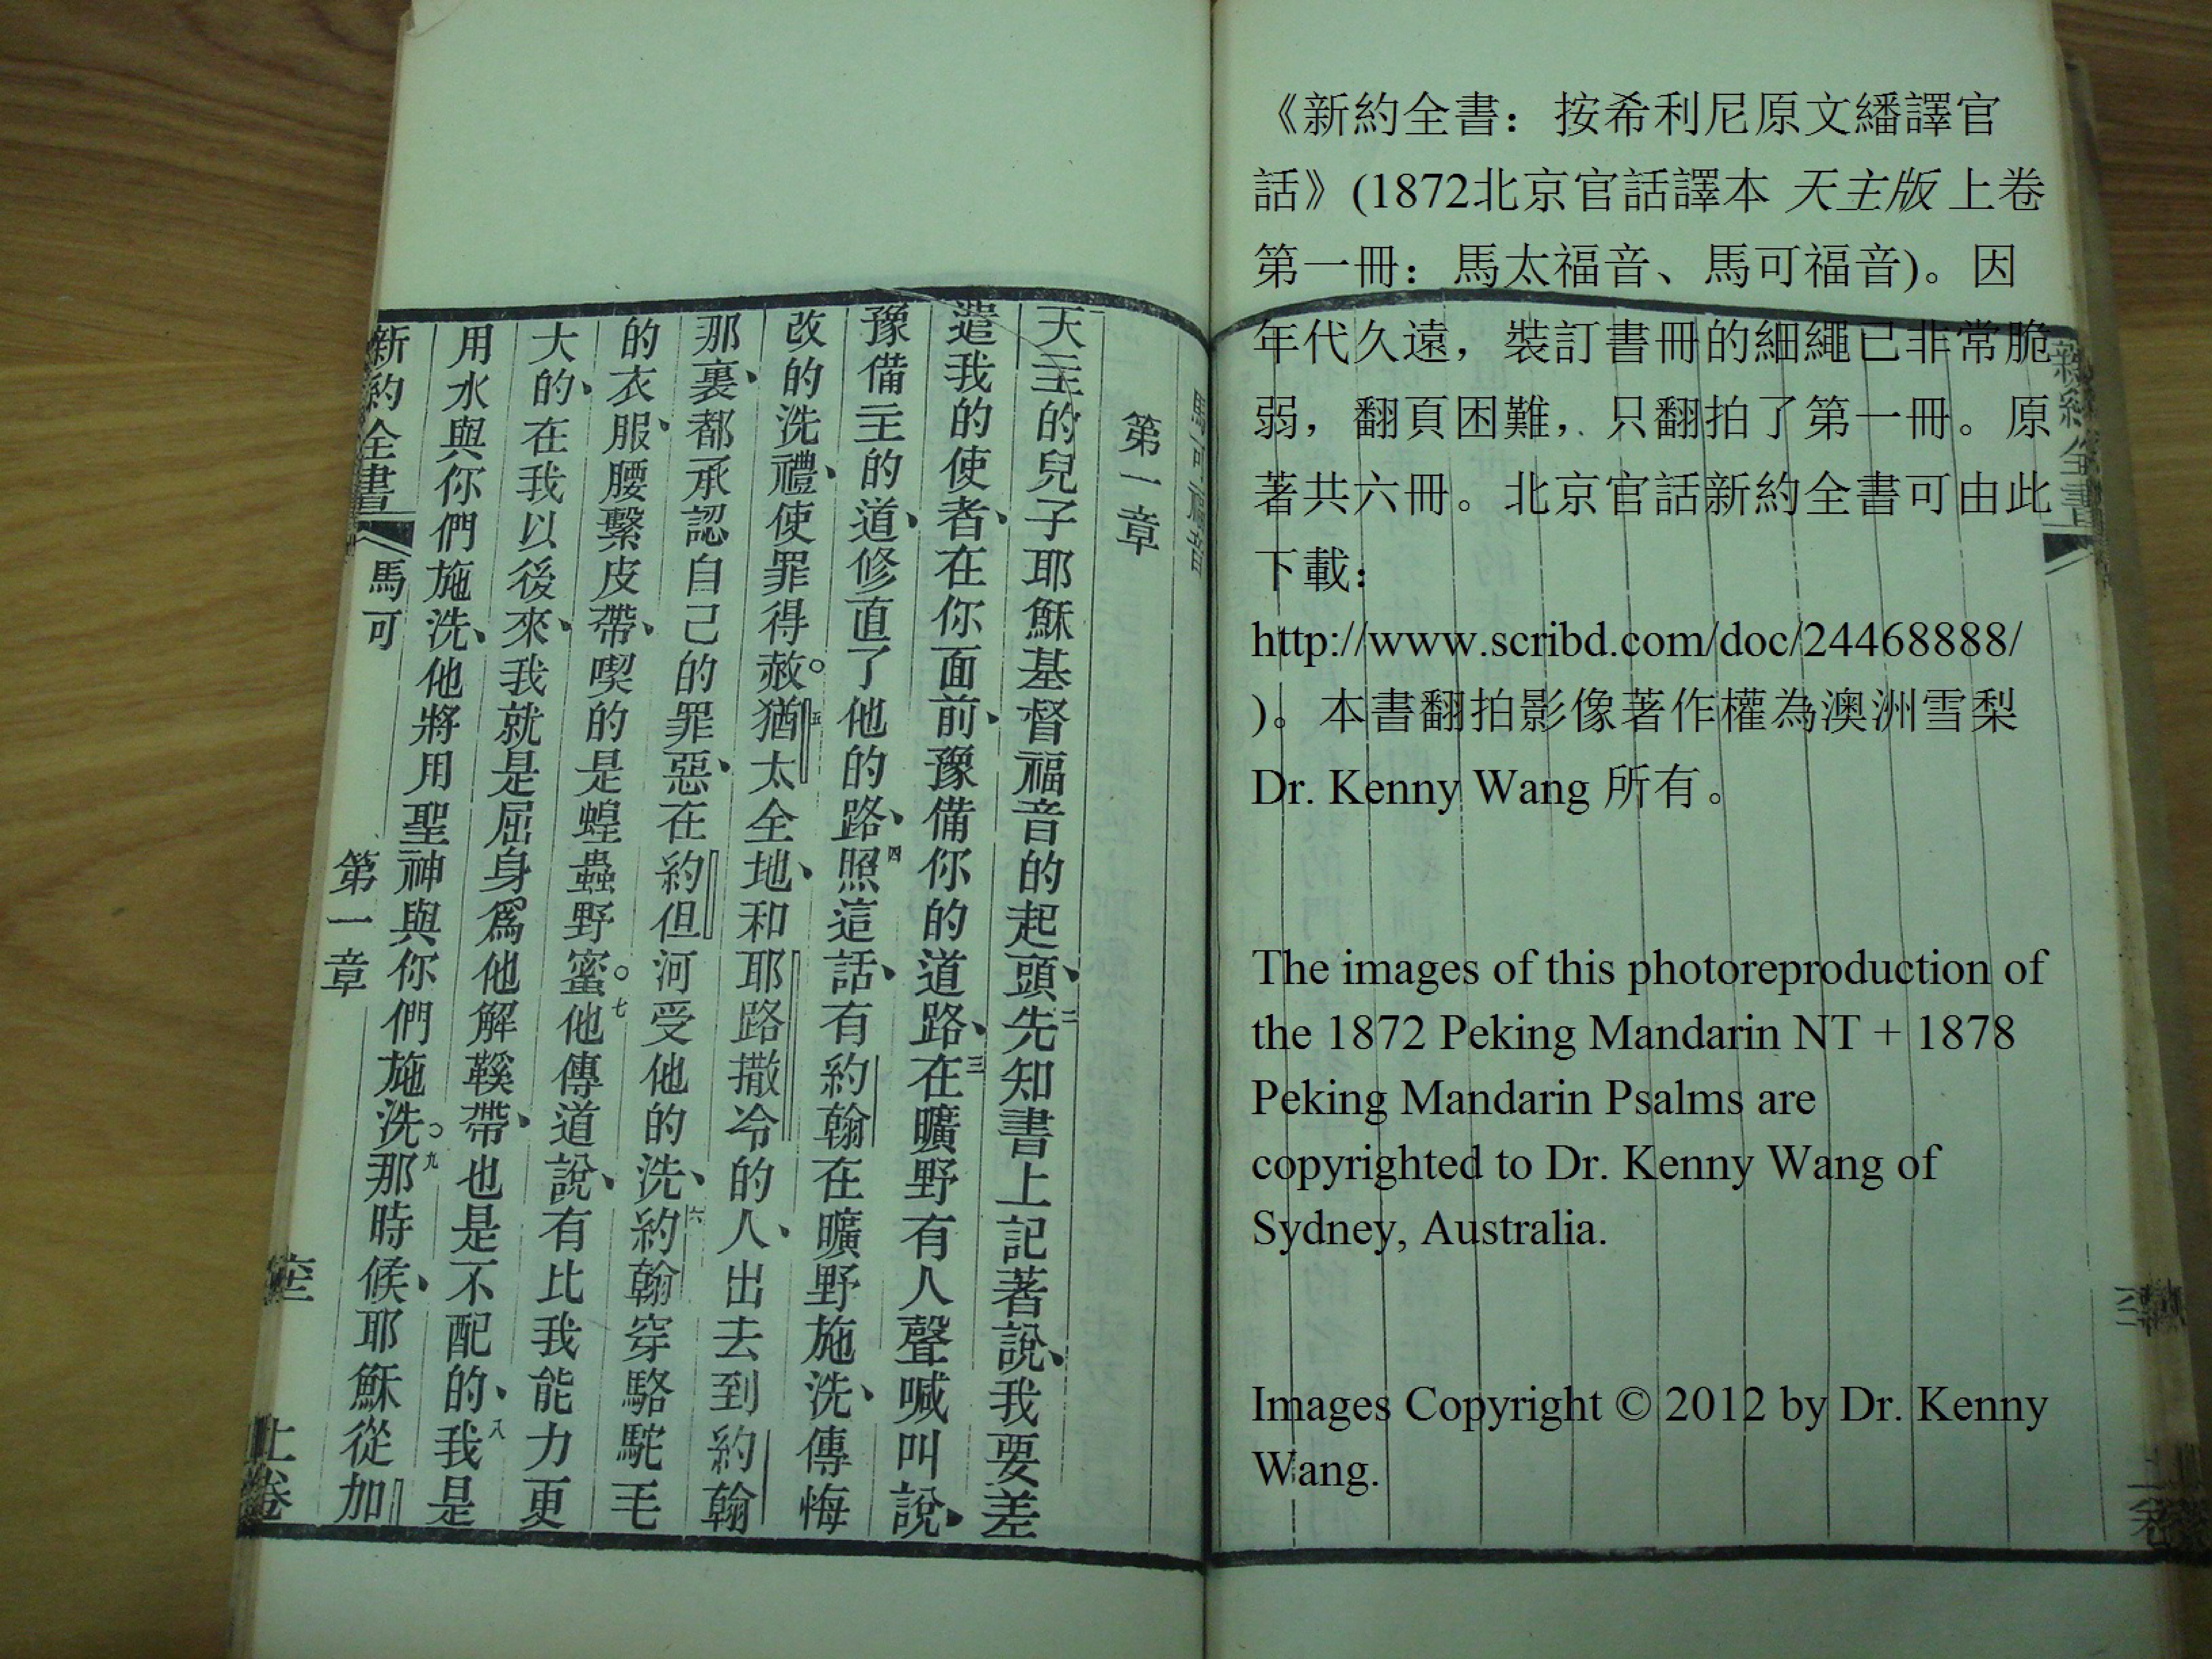 馬可福音
第一章
天主的兒子耶穌基督福音的起頭、二先知書上記著說、我要差
遣我的使者、在你面前、豫備你的道路、三在曠野有人聲喊叫說、
豫備主的道、修直了他的路、四照這話、有約翰在曠野施洗、傳悔
改的洗禮、使罪得赦。五猶太全地、和耶路撒冷的人、出去到約翰
那裏、都承認自己的罪惡、在約但河受他的洗、六約翰穿駱駝毛
的衣服、腰繫皮帶、喫的是蝗蟲野蜜。七他傳道說、有比我能力更
大的、在我以後來、我就是屈身爲他解鞵帶、也是不配的、八我是
用水與你們施洗、他將用聖神與你們施洗。九那時候、耶穌從加
新約全書 馬可 第一章 上卷
《新約全書：按希利尼原文繙譯官
話》(1872北京官話譯本 天主版 上卷
第一冊：馬太福音、馬可福音)。因
年代久遠，裝訂書冊的細繩已非常脆
弱，翻頁困難，只翻拍了第一冊。原
著共六冊。北京官話新約全書可由此
下載：
http://www.scribd.com/doc/24468888/
)。本書翻拍影像著作權為澳洲雪梨
Dr. Kenny Wang 所有。
The images of this photoreproduction of
the 1872 Peking Mandarin NT + 1878
Peking Mandarin Psalms are
copyrighted to Dr. Kenny Wang of
Sydney, Australia.
Images Copyright © 2012 by Dr. Kenny
Wang.
新約全書